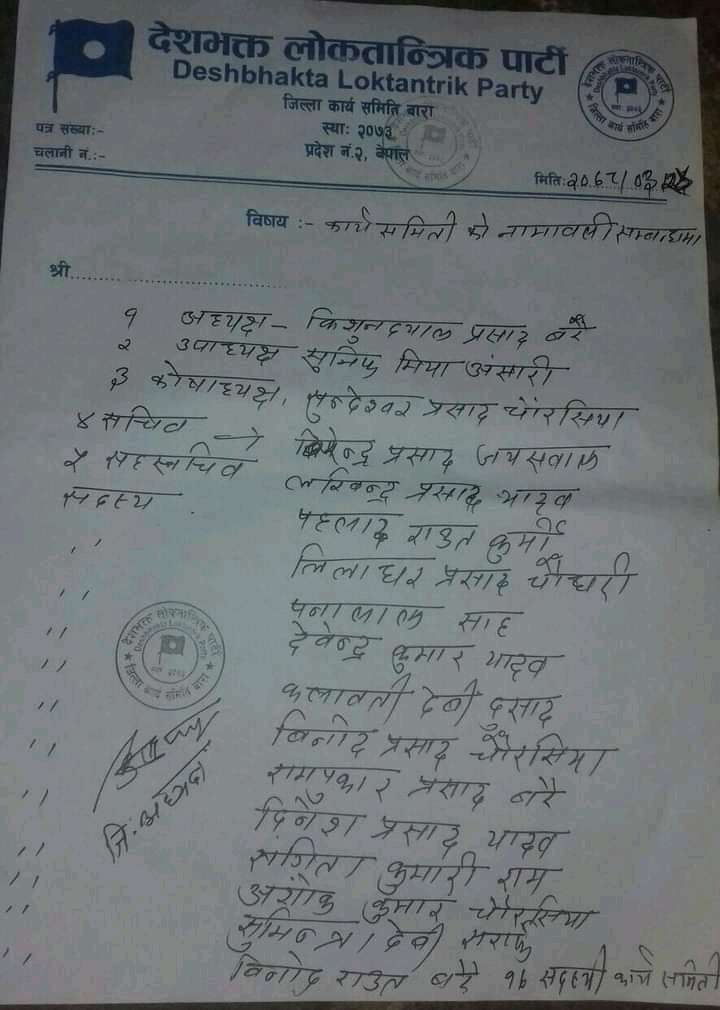 देशभक्त लोकतान्त्रिक पार्टी
Deshbhakta Loktantrik Party
जिल्ला कार्य समिति बारा
स्था: २०७३
प्रदेश नं.२, नेपाल
पत्र संख्या:-
चलानी नं.:-
मिति:
विषय :- कार्य समिती को नामावली सम्बन्धमा
श्री
१ अध्यक्ष - किशुनदयाल प्रसाद बरै
२ उपाध्यक्ष मिया अंसारी
३ कोषाध्यक्ष, सुन्देश्वर प्रसाद चौरसिया
४ सचिव प्रसाद जयसवाल
५ सहसचिव प्रसाद यादव
सदस्य पहलाद राउत कुर्मी
" लिलाधर प्रसाद चौधरी
" पनालाल साह
" देवेन्द्र कुमार यादव
" कलावती देवी दुसाद
" विनोद प्रसाद चौरसिया
" रामपुकार प्रसाद बरै
" दिनेश प्रसाद यादव
" कुमारी राम
" कुमार चौरसिया
" देवी
" विनोद राउत बरै १७ सदस्यी कार्य समिती
देशभक्त लोकतान्त्रिक पार्टी
Deshbhakta Loktantrik Party
स्था: २०७३
जिल्ला कार्य समिति बारा
जि: अध्यक्ष